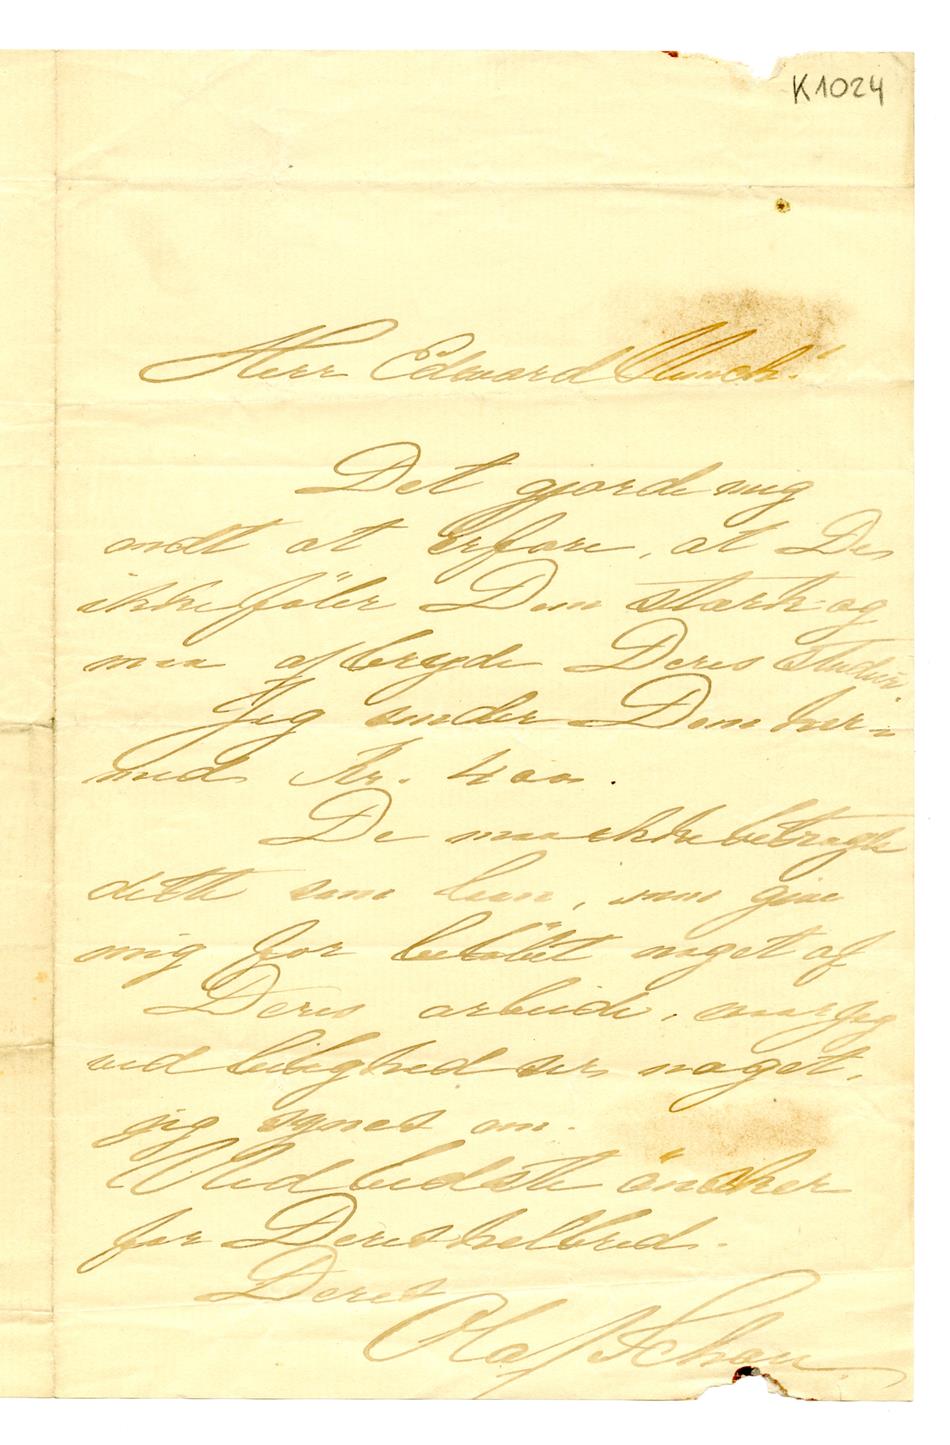 K1024
Herr Edward Munch!
Det gjorde mig
ondt at erfare, at De
ikke føler Dem stærk og
maa afbryde Deres Studier.
Jeg sender Dem her-
med Kr. 400.
De maa ikke betragte
dette som laan, men give
mig for beløbet noget af
Deres arbeide, naar jeg
ved leilighed ser noget,
jeg synes om.
Med bedste ønsker
for Deres helbred.
Deres
Olaf Schou